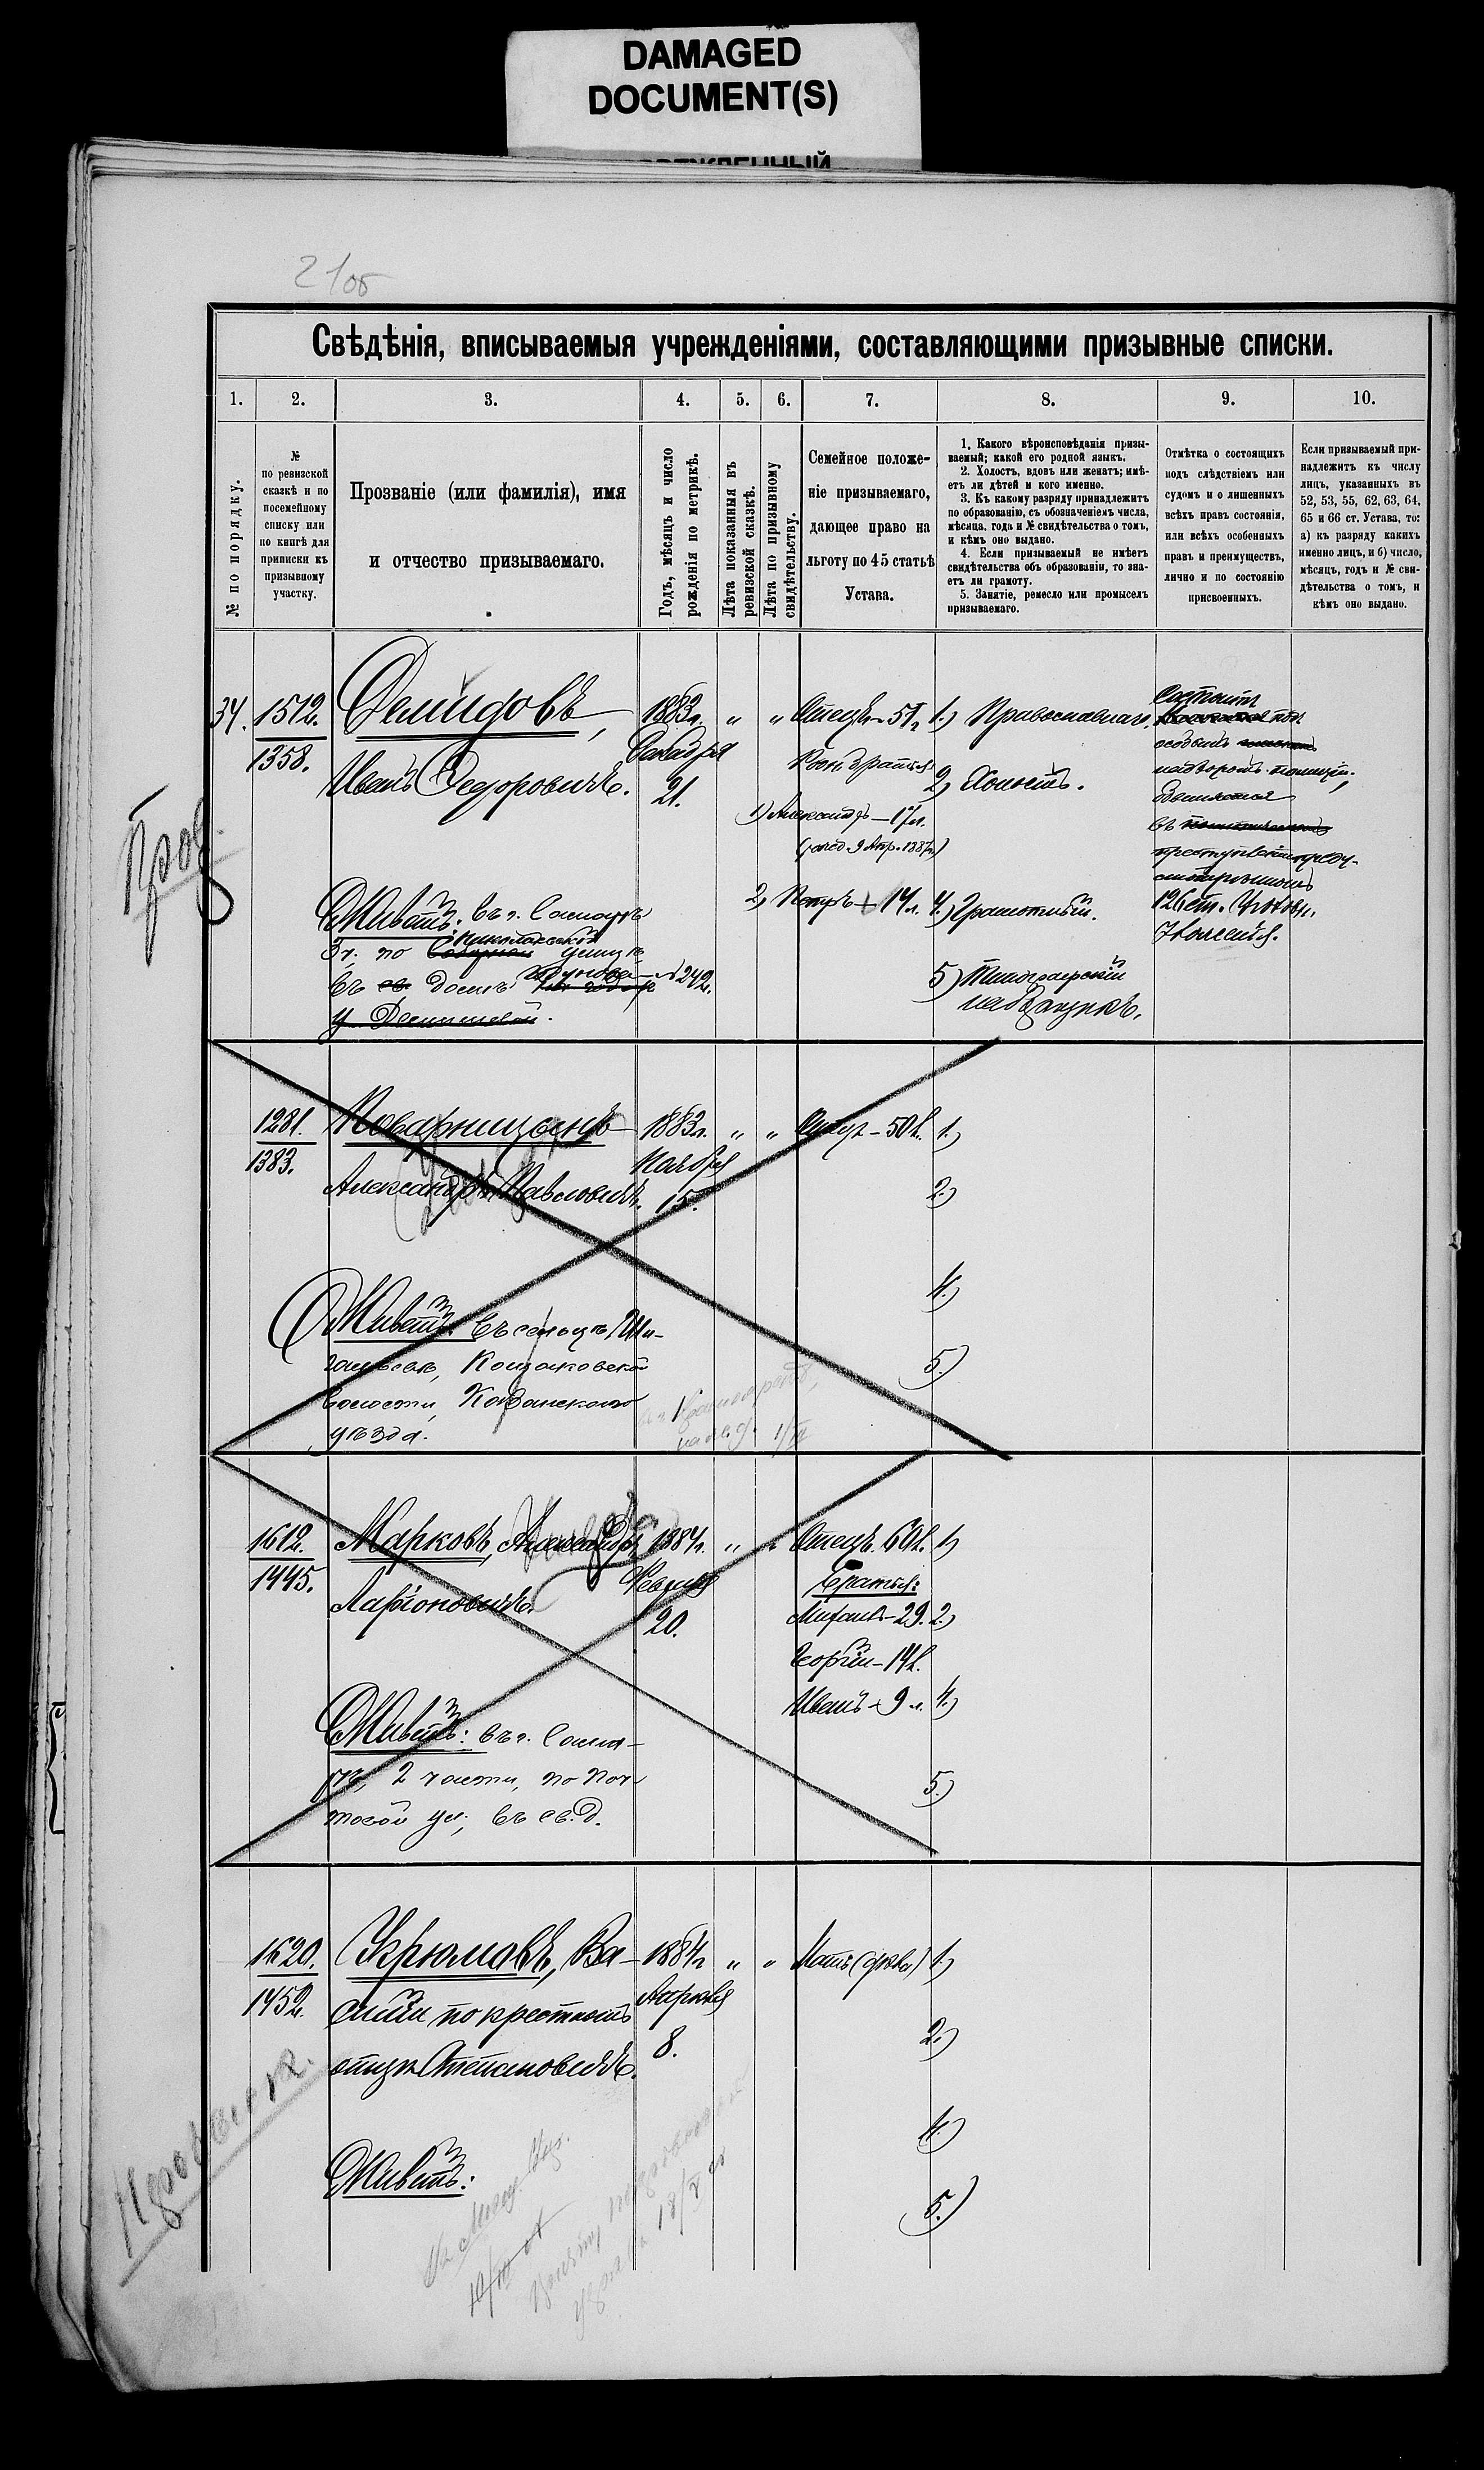 DAMAGED
DOCUMENT(S)
21об
Свѣдѣнія, вписываемыя учрежденіями, составляющими призывные списки.
1. 2. 3. 4. 5. 6. 7. 8. 9. 10.
№ по порядку.
№
по ревизской
сказкѣ и по
посемейному
списку или
по книгѣ для
приписки къ
призывному
участку.
Прозваніе (или фамилія), имя
и отчество призываемаго.
Годъ, мѣсяцъ и число
рожденія по метрикѣ.
Лѣта показанныя въ
ревизской сказкѣ.
Лѣта по призывному
свидѣтельству.
Семейное положе-
ніе призываемаго,
дающее право на
льготу по 45 статьѣ
Устава.
1. Какого вѣроисповѣданія призы-
ваемый; какой его родной языкъ.
2. Холостъ, вдовъ или женатъ; имѣ-
етъ ли дѣтей и кого именно.
3. Къ какому разряду принадлежитъ
по образованію, съ обозначеніемъ числа,
мѣсяца, года и № свидѣтельства о томъ,
и кѣмъ оно выдано.
4. Если призываемый не имѣетъ
свидѣтельства объ образованіи, то зна-
етъ ли грамоту.
5. Занятіе, ремесло или промыселъ
призываемаго.
Отмѣтка о состоящихъ
подъ слѣдствіемъ или
судомъ и о лишенныхъ
всѣхъ правъ состоянія,
или всѣхъ особенныхъ
правъ и преимуществъ,
лично и по состоянію
присвоенныхъ.
Если призываемый при-
надлежитъ къ числу
лицъ, указанныхъ въ
52, 53, 55, 62, 63, 64,
65 и 66 ст. Устава, то:
а) къ разряду какихъ
именно лицъ, и б) число,
мѣсяцъ, годъ и № сви-
дѣтельства о томъ, и
кѣмъ оно выдано.
34.
1512.
1358.
Демидовъ,
Иванъ Федоровичъ.
Живетъ: въ г. Самарѣ
3 ч. по Николаевской улицѣ
въ домѣ № 242.
1883 г.
Декабря
21.
" "
Отецъ - 51 г.
1) Александръ - 17 л.
(рожд. 9 Апр. 1887 г.)
2) Петръ - 14 л.
1.) Православнаго.
2) Холостъ.
4.) Грамотный.
5) Типографскій
наборщикъ.
Состоитъ под
особымъ
надзоромъ полиціи,
въ
преступленіи преду-
смотрѣнномъ
126 ст. Уголовн.
Уложенія.
1281.
1383.
Поварницынъ
Александръ Павловичъ.
Живетъ: въ сельцѣ Ши-
Волости, Казанскаго
уѣзда.
1883 г.
Ноября
15.
" "
Отецъ - 50 л.
1.)
2.)
4.)
5.)
1612.
1445.
Марковъ, Александръ
Ларіоновичъ.
Живетъ: въ г. Сама-
рѣ, 2 части, по Поч-
товой ул., въ св. д.
1884 г.
Февраля
20.
" "
Отецъ 60 л.
Братья:
Михаилъ - 29.
Георгій - 14 л.
Иванъ - 9 л.
1)
2.)
4.)
5.)
1620.
1452.
Урюмовъ, Ва-
силій по крестному
отцу Степановичъ.
Живетъ:
1884 г.
Апрѣля
8.
" "
Мать (дѣва)
1.)
2.)
4.)
5.)